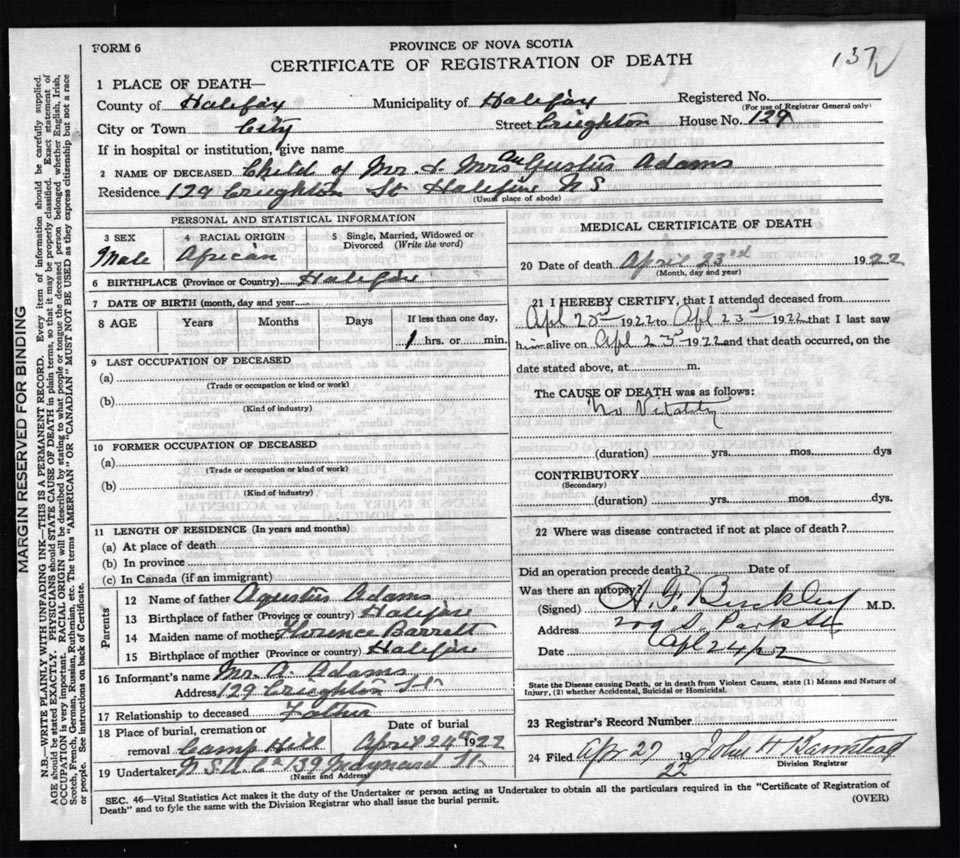 FORM 6
PROVINCE OF NOVA SCOTIA
CERTIFICATE OF REGISTRATION OF DEATH
137
1 PLACE OF DEATH—
County of Halifax Municipality of Halifax Registered No.
(For use of Registrar General only)
City or Town City Street Creighton House No. 129
If in hospital or institution, give name
2 NAME OF DECEASED Child of Mr. & Mrs Augustus Adams
Residence 129 Creighton St Halifax N S
(Usual place of abode)
PERSONAL AND STATISTICAL INFORMATION
3 SEX 4 RACIAL ORIGIN 5 Single, Married, Widowed or Divorced (Write the word)
Male African
6 BIRTHPLACE (Province or Country) Halifax
7 DATE OF BIRTH (month, day and year)
8 AGE Years Months Days If less than one day,
1 hrs. or min.
9 LAST OCCUPATION OF DECEASED
(a)
(Trade or occupation or kind or work)
(b)
(Kind of industry)
10 FORMER OCCUPATION OF DECEASED
(a)
(Trade or occupation or kind of work)
(b)
(Kind of industry)
11 LENGTH OF RESIDENCE (In years and months)
(a) At place of death
(b) In province
(c) In Canada (if an immigrant)
Parents
12 Name of father Agustus Adams
13 Birthplace of father (Province or country) Halifax
14 Maiden name of mother Florence Barrett
15 Birthplace of mother (Province or country) Halifax
16 Informant's name Mr. A. Adams
Address 129 Creighton St.
17 Relationship to deceased Father
18 Place of burial, cremation or removal Camp Hill
Date of burial April 24th 1922
19 Undertaker N.S.U. Co 139 Maynard St.
(Name and Address)
MEDICAL CERTIFICATE OF DEATH
20 Date of death April 23rd 1922
(Month, day and year)
21 I HEREBY CERTIFY, that I attended deceased from
Apl 23rd 1922 to Apl 23rd 1922 that I last saw
him alive on Apl 23rd 1922 and that death occurred, on the
date stated above, at m.
The CAUSE OF DEATH was as follows:
No Vitality
(duration) yrs. mos. dys
CONTRIBUTORY
(Secondary)
(duration) yrs. mos. dys.
22 Where was disease contracted if not at place of death?
Did an operation precede death? Date of
Was there an autopsy?
(Signed) M.D.
Address 209 S. Park St
Date Apl 24/22
State the Disease causing Death, or in death from Violent Causes, state (1) Means and Nature of
Injury, (2) whether Accidental, Suicidal or Homicidal.
23 Registrar's Record Number
24 Filed Apr 27 1922 John H
Division Registrar
SEC. 46—Vital Statistics Act makes it the duty of the Undertaker or person acting as Undertaker to obtain all the particulars required in the "Certificate of Registration of
Death" and to fyle the same with the Division Registrar who shall issue the burial permit.
(OVER)
MARGIN RESERVED FOR BINDING
N.B.—WRITE PLAINLY WITH UNFADING INK—THIS IS A PERMANENT RECORD. Every item of information should be carefully supplied.
AGE should be stated EXACTLY. PHYSICIANS should STATE CAUSE OF DEATH in plain terms, so that it may be properly classified. Exact statement of
OCCUPATION is very important. RACIAL ORIGIN will be described by stating to what people or tongue the deceased person belonged, whether English, Irish,
Scotch, French, German, Russian, Ruthenian, etc. The terms "AMERICAN" OR "CANADIAN" MUST NOT BE USED as they express citizenship but not a race
or people. See instructions on back of Certificate.